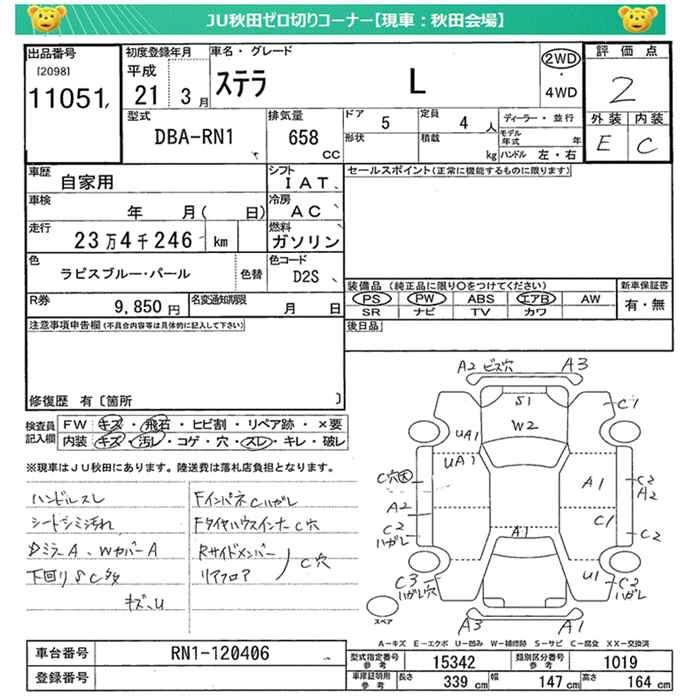 JU秋田ゼロ切りコーナー【現車：秋田会場】
出品番号
[2098]
11051
初度登録年月
平成
21 3月
車名・グレード
ステラ L
2WD
・
4WD
評価点
2
外装 内装
E C
型式
DBA-RN1
排気量
658
CC
ドア 5
定員 4 人
形状
積載 kg
ディーラー・並行
モデル年式 年
ハンドル 左・右
車歴
自家用
シフト
IAT
車検
年 月( 日)
冷房
AC
走行
23万4千246 km
燃料
ガソリン
色
ラピスブルー・パール
色替
色コード
D2S
R券
9,850円
名変通知期限
月 日
セールスポイント(正常に機能するものに限ります)
装備品(純正品に限り○をつけてください)
PS PW ABS エアB AW
SR ナビ TV カワ
新車保証書
有・無
後日品
注意事項申告欄(不具合内容等は具体的に記入して下さい)
修復歴 有〔箇所 〕
検査員記入欄
FW キズ・飛石・ヒビ割・リペア跡・×要
内装 キズ・汚レ・コゲ・穴・スレ・キレ・破レ
※現車はJU秋田にあります。陸送費は落札店負担となります。
ハンドルスレ
シートシミ汚れ
DミラーA、WカバーA
下回りSC多
キズ、U
FインパネCハガレ
FタイヤハウスインナーC穴
Rサイドメンバー
リアフロア
C穴
A2 ビズ穴 A3
S1
W2
C1
UA1
UA1
C穴大
A1
C2
A2
A2
C2
ハガレ
C1
C2
A1
C3
ハガレ穴
U1
C2
ハガレ
A3
A1
スペア
A－キズ E－エクボ U－凹み W－補修跡 S－サビ C－腐食 XX－交換済
車台番号
RN1-120406
登録番号
型式指定番号
参考
15342
類別区分番号
参考
1019
車庫証明用
参考
長さ 339 cm
幅 147 cm
高さ 164 cm